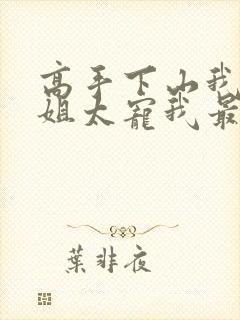 高手下山我
姐太寵我最
葉非夜